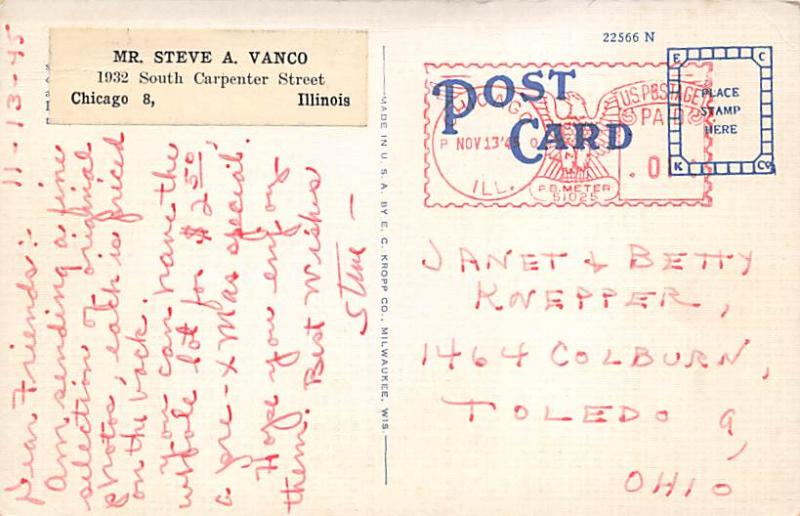 11-13-45
MR. STEVE A. VANCO
1932 South Carpenter Street
Chicago 8, Illinois
Dear Friends:-
Am sending a fine
selection of original
photos, each is priced
on the back.
You can have the
whole lot for $2.50,
a pre-xmas special.
Hope you enjoy
them. Best Wishes
Steve -
MADE IN U. S. A. BY E. C. KROPP CO., MILWAUKEE, WIS.
22566 N
POST CARD
CHICAGO
NOV 13 '45
ILL.
U.S. POSTAGE
PAID
P.B. METER
51025
E C
PLACE
STAMP
HERE
K Co
JANET & BETTY
KNEPPER,
1464 COLBURN,
TOLEDO 9,
OHIO